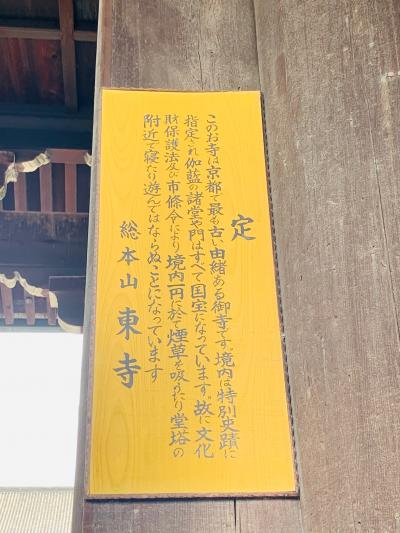 定
このお寺は京都で最も古い由緒ある御寺です。境内は特別史蹟に
指定され伽藍の諸堂や門はすべて国宝になっています。故に文化
財保護法及び市條令により境内一円に於て煙草を吸うたり堂塔の
附近で寝たり遊んではならぬことになっています
総本山 東寺